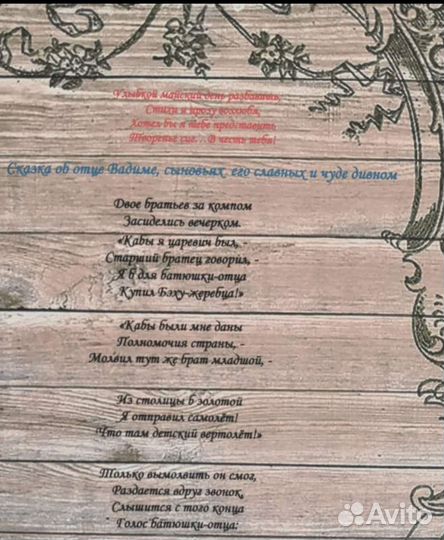 Улыбкой майский день разбавить,
Стихи и прозу возлюбя,
Хотел бы я тебе представить
Творенье сие... В честь тебя!
Сказка об отце Вадиме, сыновьях, его славных и чуде дивном
Двое братьев за компом
Засиделись вечерком.
«Кабы я царевич был, -
Старший братец говорил, -
Я б для батюшки-отца
Купил Бэху-жеребца!»
«Кабы были мне даны
Полномочия страны, -
Молвил тут же брат младшой, -
Из столицы б золотой
Я отправил самолёт!
Что там детский вертолёт!»
Только вымолвить он смог,
Раздается вдруг звонок,
Слышится с того конца
Голос батюшки-отца:
Avito